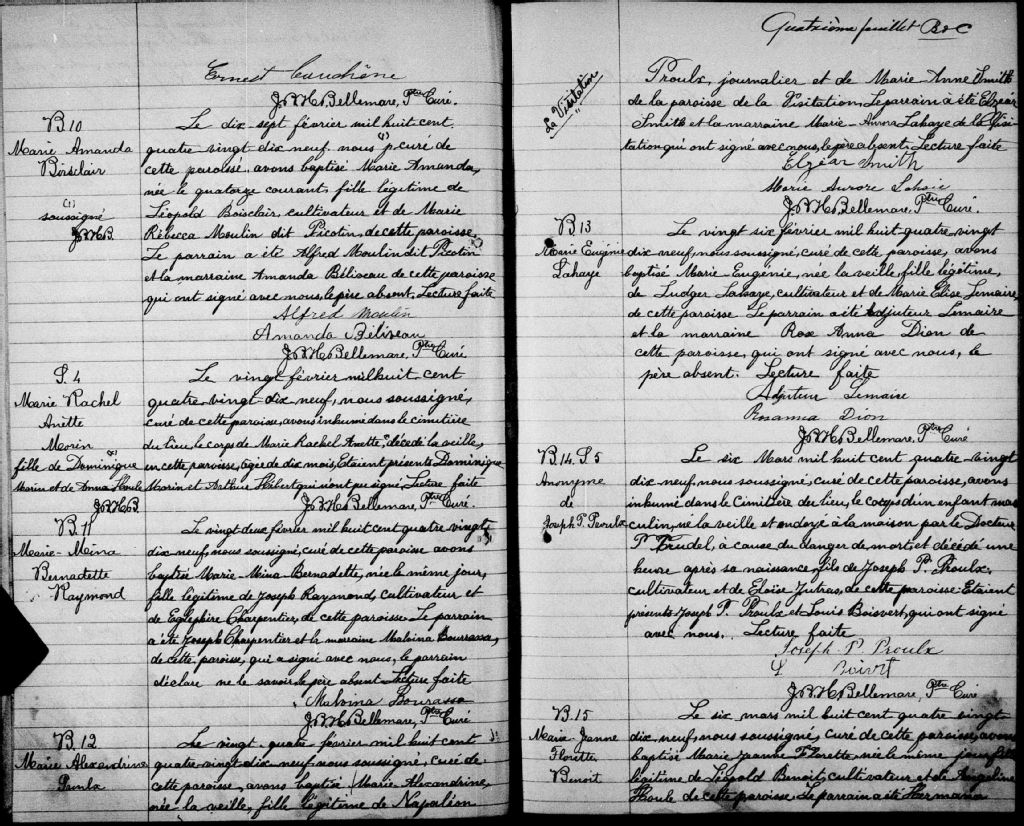 Ernest Courchêne
J.B.H.Bellemare, Ptre Curé.
B.10
Marie Amanda
Boisclair
(1)
soussigné
J.B.H.B.
Le dix-sept février mil huit cent
quatre vingt dix neuf. nous (1) p. curé de
cette paroisse, avons baptisé Marie Amanda,
née le quatorze courant, fille légitime de
Léopold Boisclair, cultivateur et de Marie
Rébecca Moulin dit Picotin, de cette paroisse.
Le parrain a été Alfred Moulin dit Picotin
et la marraine Amanda Béliveau de cette paroisse
qui ont signé avec nous, le père absent. Lecture faite
Alfred Moulin
Amanda Béliveau
J.B.H.Bellemare, Ptre Curé
S.4
Marie Rachel
Anette
Morin
fille de Dominique
Morin et de Anna
J.B.H.B.
Le vingt février mil huit cent
quatre-vingt dix neuf, nous soussigné,
curé de cette paroisse, avons inhumé dans le cimetière
du lieu, le corps de Marie Rachel Anette, décédé la veille,
en cette paroisse, agée de dix mois, Etaient présents Dominique
Morin et Arthur Hébert qui n'ont pu signé, Lecture faite
J.B.H.Bellemare, Ptre Curé.
B.11
Marie-Mina
Bernadette
Raymond
Le vingt deux février mil huit cent quatre vingt
dix neuf, nous soussigné, curé de cette paroisse avons
baptisé Marie Mina Bernadette, née le même jour,
fille légitime de Joseph Raymond, cultivateur et
de Eglephire Charpentier, de cette paroisse. Le parrain
a été Joseph Charpentier et la marraine Malvina Bourassa,
de cette paroisse, qui a signé avec nous, le parrain
déclare ne le savoir, le père absent Lecture faite
Malvina Bourassa
J.B.H.Bellemare, Ptre Curé
B.12
Marie Alexandrine
Proulx
Le vingt-quatre février mil huit cent
quatre-vingt dix neuf, nous soussigné, curé de
cette paroisse, avons baptisé Marie Alexandrine,
née la veille, fille légitime de Napoléon
Quatrième feuillet B&C
La Visitation
Proulx, journalier et de Marie-Anne Smith
de la paroisse de la Visitation. Le parrain a été Elzéar
Smith et la marraine Marie-Aurora Lahaye de la Visi-
tation qui ont signé avec nous, le père absent. Lecture faite
Elzéar Smith
Marie Aurore Lahaie
J.B.H.Bellemare, Ptre Curé.
B.13
Marie Eugénie
Lahaye
Le vingt six février mil huit quatre vingt
dix neuf, nous soussigné, curé de cette paroisse, avons
baptisé Marie Eugénie, née la veille, fille légitime,
de Ludger Lahaye, cultivateur et de Marie Elise Lemaire,
de cette paroisse. Le parrain a été Adjuteur Lemaire
et la marraine Rose Anna Dion de
cette paroisse, qui ont signé avec nous, le
père absent. Lecture faite
Adjuteur Lemaire
Roseanna Dion
J.B.H.Bellemare, Ptre Curé
B.14. S 5
Anonyme
de
Joseph P. Proulx
Le six Mars mil huit cent quatre-vingt
dix neuf, nous soussigné, curé de cette paroisse, avons
inhumé dans le Cimitière du lieu, le corps d'un enfant mas
culin, né la veille et ondoyé à la maison par le Docteur
P. Trudel, à cause du danger de mort, et décédé une
heure après sa naissance, fils de Joseph P. Proulx,
cultivateur et de Eloïse Jutras, de cette paroisse: Etaient
présents Joseph P. Proulx et Louis Boisvert, qui ont signé
avec nous. Lecture faite
Joseph P. Proulx
L Boivert
J.B.H.Bellemare, Ptre Curé
B.15
Marie-Jeanne
Florette
Benoit
Le six mars mil huit cent quatre vingt
dix neuf, nous soussigné, curé de cette paroisse, avons
baptisé Marie Jeanne Florette, née le même jour, fille
légitime de Léopold Benoit, cultivateur et de Angeline
Houle de cette paroisse. Le parrain a été Hermann